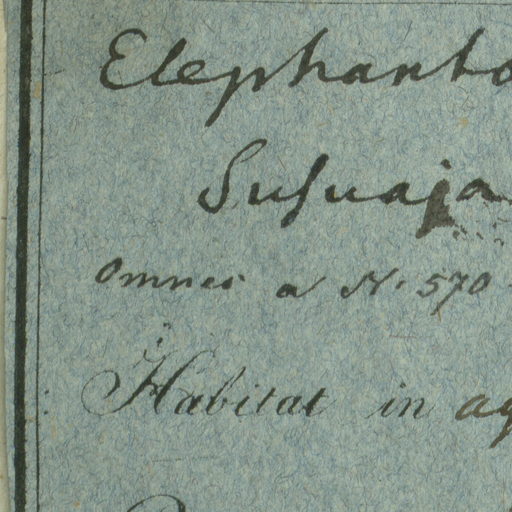 Elephanto
Susuaja
Omnes a N. 570
Habitat in ag